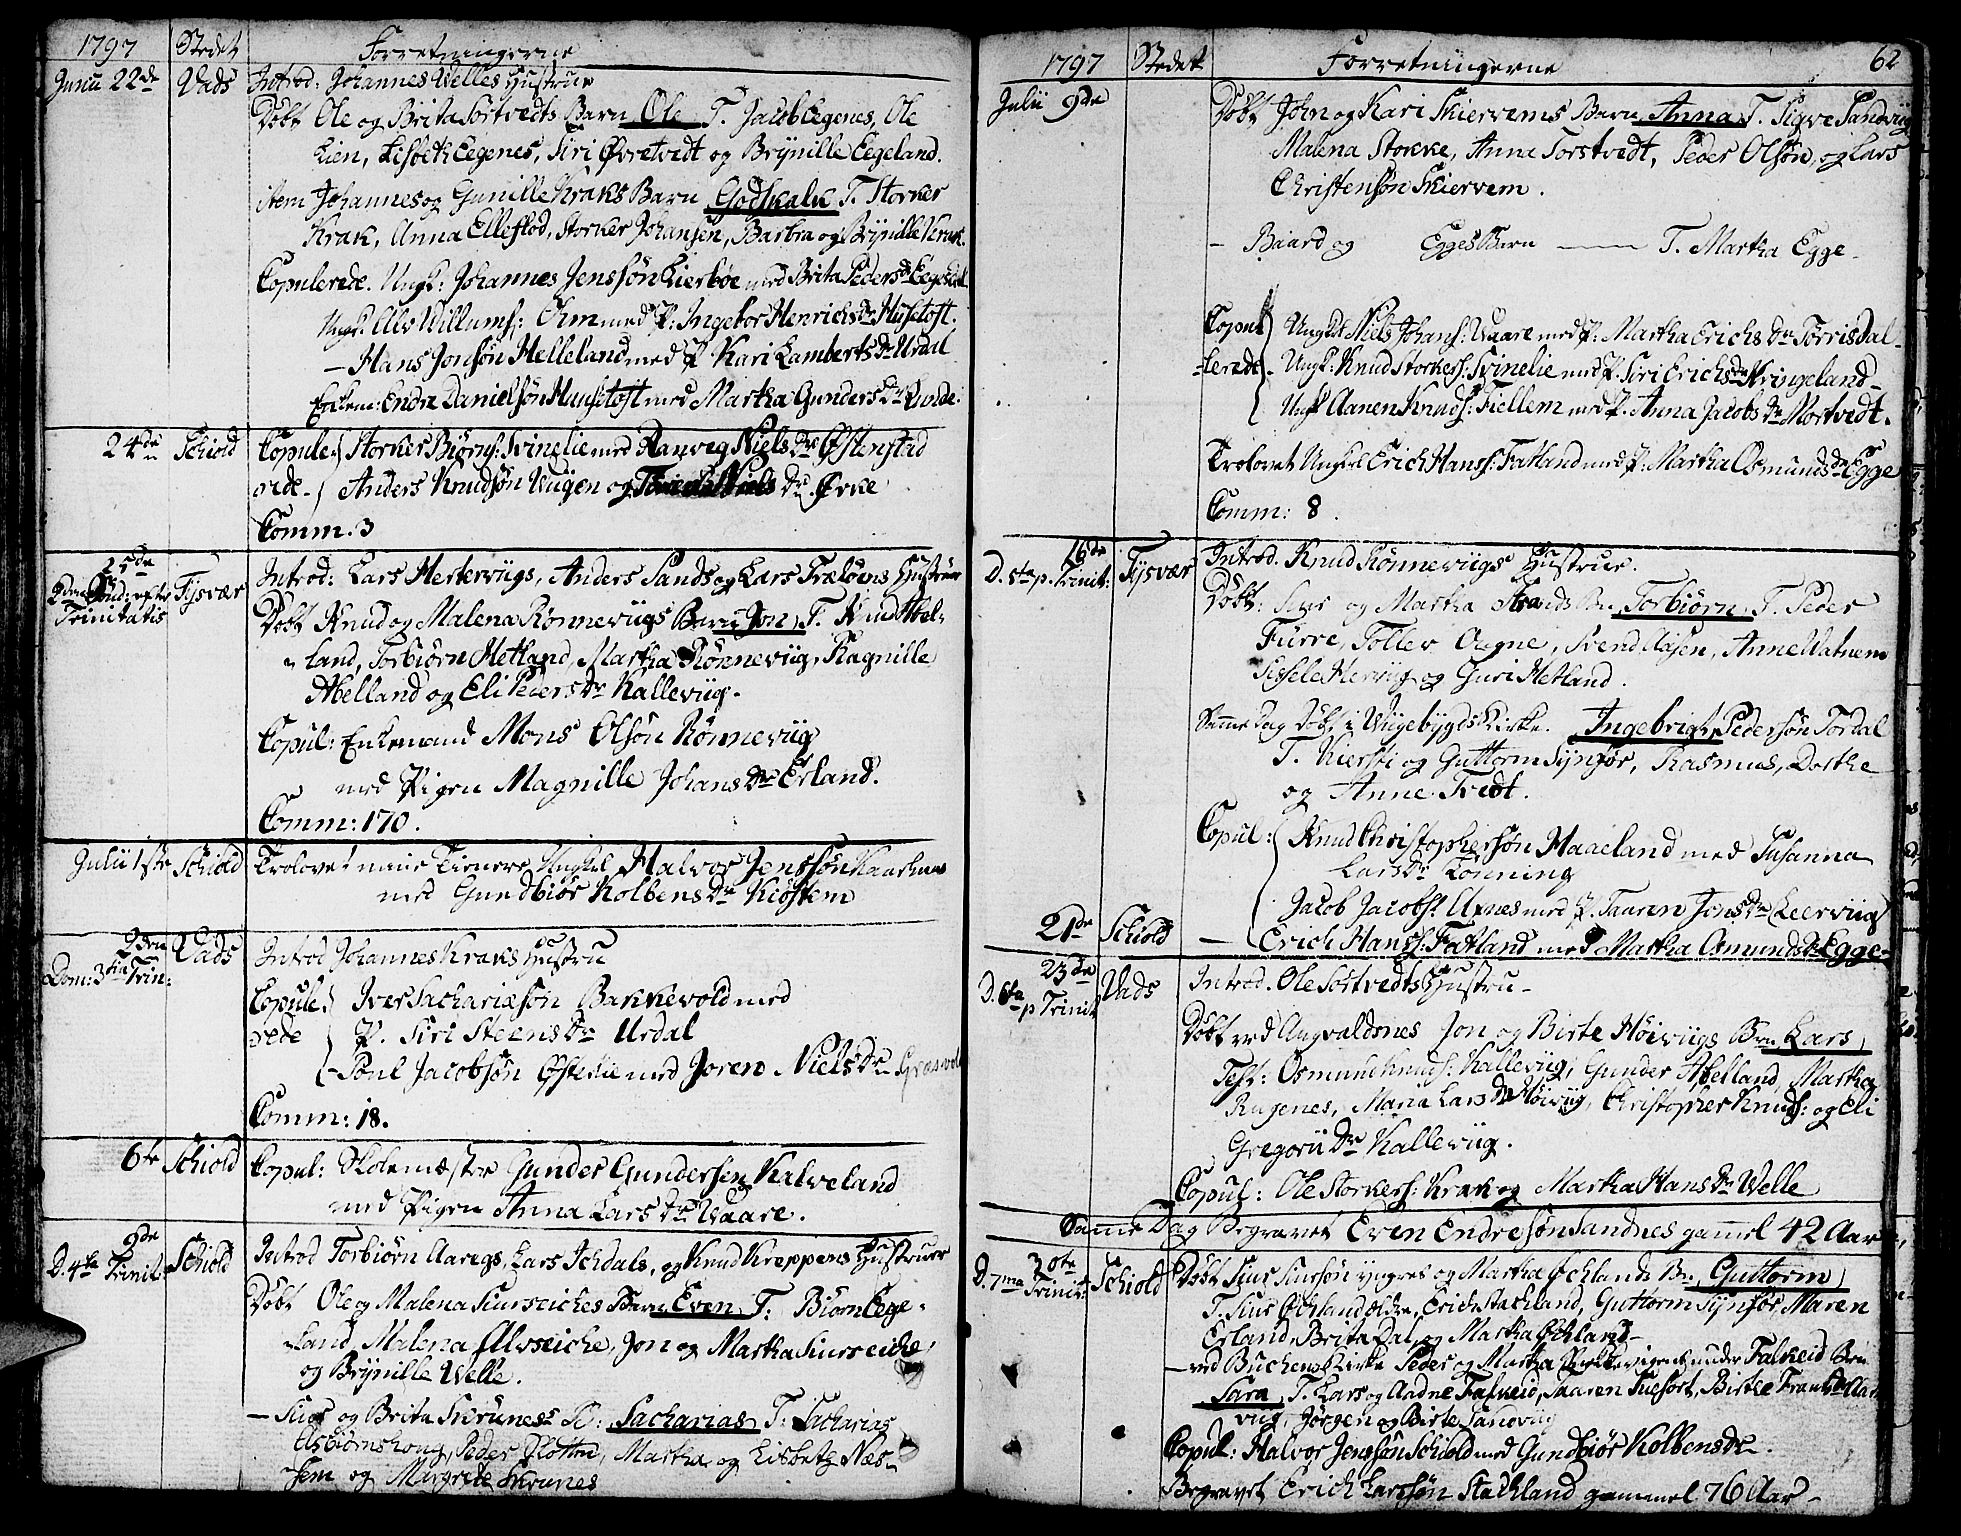 1797 Stedet Forretningerne
Junii 22de Vads Introd: Johannes Welles Hustrue
Døbt Ole og Brita Sørtvedts Barn Ole T. Jacob Eegenes, Ole
Lien, Lisbeth Eegenes, Siri Øvretvedt og Brÿnille Eegeland.
item Johannes og Gunille Kraks Barn Godskalk T. Storker
Krak, Anna Elleflod, Storker Johansen, Barbra og Brÿnille Krak.
Copulerede. Ungk: Johannes Jenssøn Lierbøe med Brita Peders Dr
Ungk: Alv Villums: Ohm med P: Ingebor Henrichs Dr Husetoft.
– Hans Jonsøn Helleland med P Kari Lamberts Dr Urdal
Enkem: Endre Danielsøn Huusetoft med Martha Gunders Dr
24de Schiold Copule- Storker Biørns: Svinelie med Ranveg Niels Dr Østenstad
rede – Anders Knudsøn Viigen og Niels Dr Øvre
Comm. 3
25de
2den Sønd: efter Tÿsvær Introd: Lars Hertervügs, Anders Sands og Lars Træløens Hustruer
Trinitatis Døbt Knud og Malena Rønnevügs Barn Jon, T. Knud Abel-
land, Torbiørn Hetland, Martha Rønnevüg, Ragnille
Abelland og Eli Peders Dr Kallevüg.
Copul: Enkemand Mons Olsøn Rønnevüg
med Pigen Magnille Johans Dr Erland.
Comm: 170.
Julii 1ste Schiold Trolovet min Tienere Ungkl Halvor Jenssøn
med Gundbiør Kolbens Dr Kiøstem
2den Vads Introd Johannes Kraks Hustru
Dom: 3tia Trin: Copule- Iver Sachariæsøn Bakkevold med
rede P. Siri Steens Dr Urdal
– Poul Jacobsøn Østelie med Joren Niels Dr
Comm: 18.
6te Schiold Copul: Skolemæster Gunder Gundersen Kalveland
med Pigen Anna Lars Dr Waare.
9de
D. 4ta Trinit: Schiold Introd Torbiørn Aaregs, Lars Ichdals, og Knud Kreppens Hustruer
Døbt Ole og Malena Siurseiches Barn Even T: Biørn Eege-
land, Malena Alvseiche, Jon og Martha Siurseiche,
og Brÿnille Welle.
– Siur og Brita Skrunes B: Sacharias T: Sacharias
Asbiørnshoug, Peder Slotten, Martha og Lisbeth Næs-
hem og Margrete Skrunes
1797 Stedet Forretningerne 62
Julii 9de Døbt John og Kari Skiervems Barn Anna T. Sigve Sandvüg
Malena Stokke, Anna Torstvedt, Peder Olsøn, og Lars
Christensøn Skiervem.
– Baard og Egges Barn —— T. Martha Egge.
Copul- Ungkl Niels Johans: Waare med P: Martha Erichs Dr Torrisdal
lerede – Ungk: Knud Storkers: Svinelie med P. Siri Erichs Dr Kringeland
Ungk Aanen Knuds: Fiellem med P. Anna Jacobs Dr Mortvedt.
Trolovet Ungkl Erich Hans: Fatland med P: Martha Osmunds Dr Egge
Comm: 8.
16de
D. 5ta p. Trinit: Tÿsvær Introd. Knud Rønnevügs Hustrue.
Døbt: Siur og Martha Strands Bn Torbiørn T. Peder
Fürre, Tollev Ougne, Svend Aasen, Anne Watnem
Sissele Hervüg og Guri Hetland.
Samme Dag Døbt i Vügebÿgds Kirke. Ingebrigt Pedersøn Tordal
T. Kiersti og Guttorm Sÿnfør, Rasmus, Dorthe
og Anne Tvedt.
Copul: Knud Christophersøn Haaeland med Susanna
Lars Dr Tønning
Jacob Jacobs: Urnes med P. Taaren Jons Dr Leervüg
21de Schiold – Erich Hans: Fatland med P Martha Osmunds Dr Egge
23de
D. 6ta p Trinit Vads Introd. Ole Sørtvedts Hustru –
Døbt ved Augvaldsnes Jon og Birte Høivügs Brn Lars
Test: Osmund Knuds: Kallevüg, Gunder Abelland, Martha
Rugenes, Maria Lars Dr Høivüg, Christopher Knuds: og Eli
Gregorii Dr Kallevüg.
Copul: Ole Storkers: Krak og Martha Hans Dr Welle
Samme Dag Begravet Even Endresøn Sandnes gamel 42 Aar
30te
D. 7ma Trinit: Schiold Døbt Siur Siursøn ÿngres og Martha Øchlands Bn: Guttorm
T. Siur Øchland ældre, Erich Stachland, Guttorm Sÿnfør, Maren
Erland, Brita Dal, og Martha Øchland
– ved Buchens Kirke Peder og Martha under Falkeid Brn
Sara, T. Lars og Aadne Falkeid, Maaren Suefort, Birthe Frants Dr
vüg, Jørgen og Birte Sandvüg
Copul: Halvor Jenssøn Schiold med Gundbiør Kolbens Dr.
Begravet Erich Larssøn Stachland gammel 76 Aar –